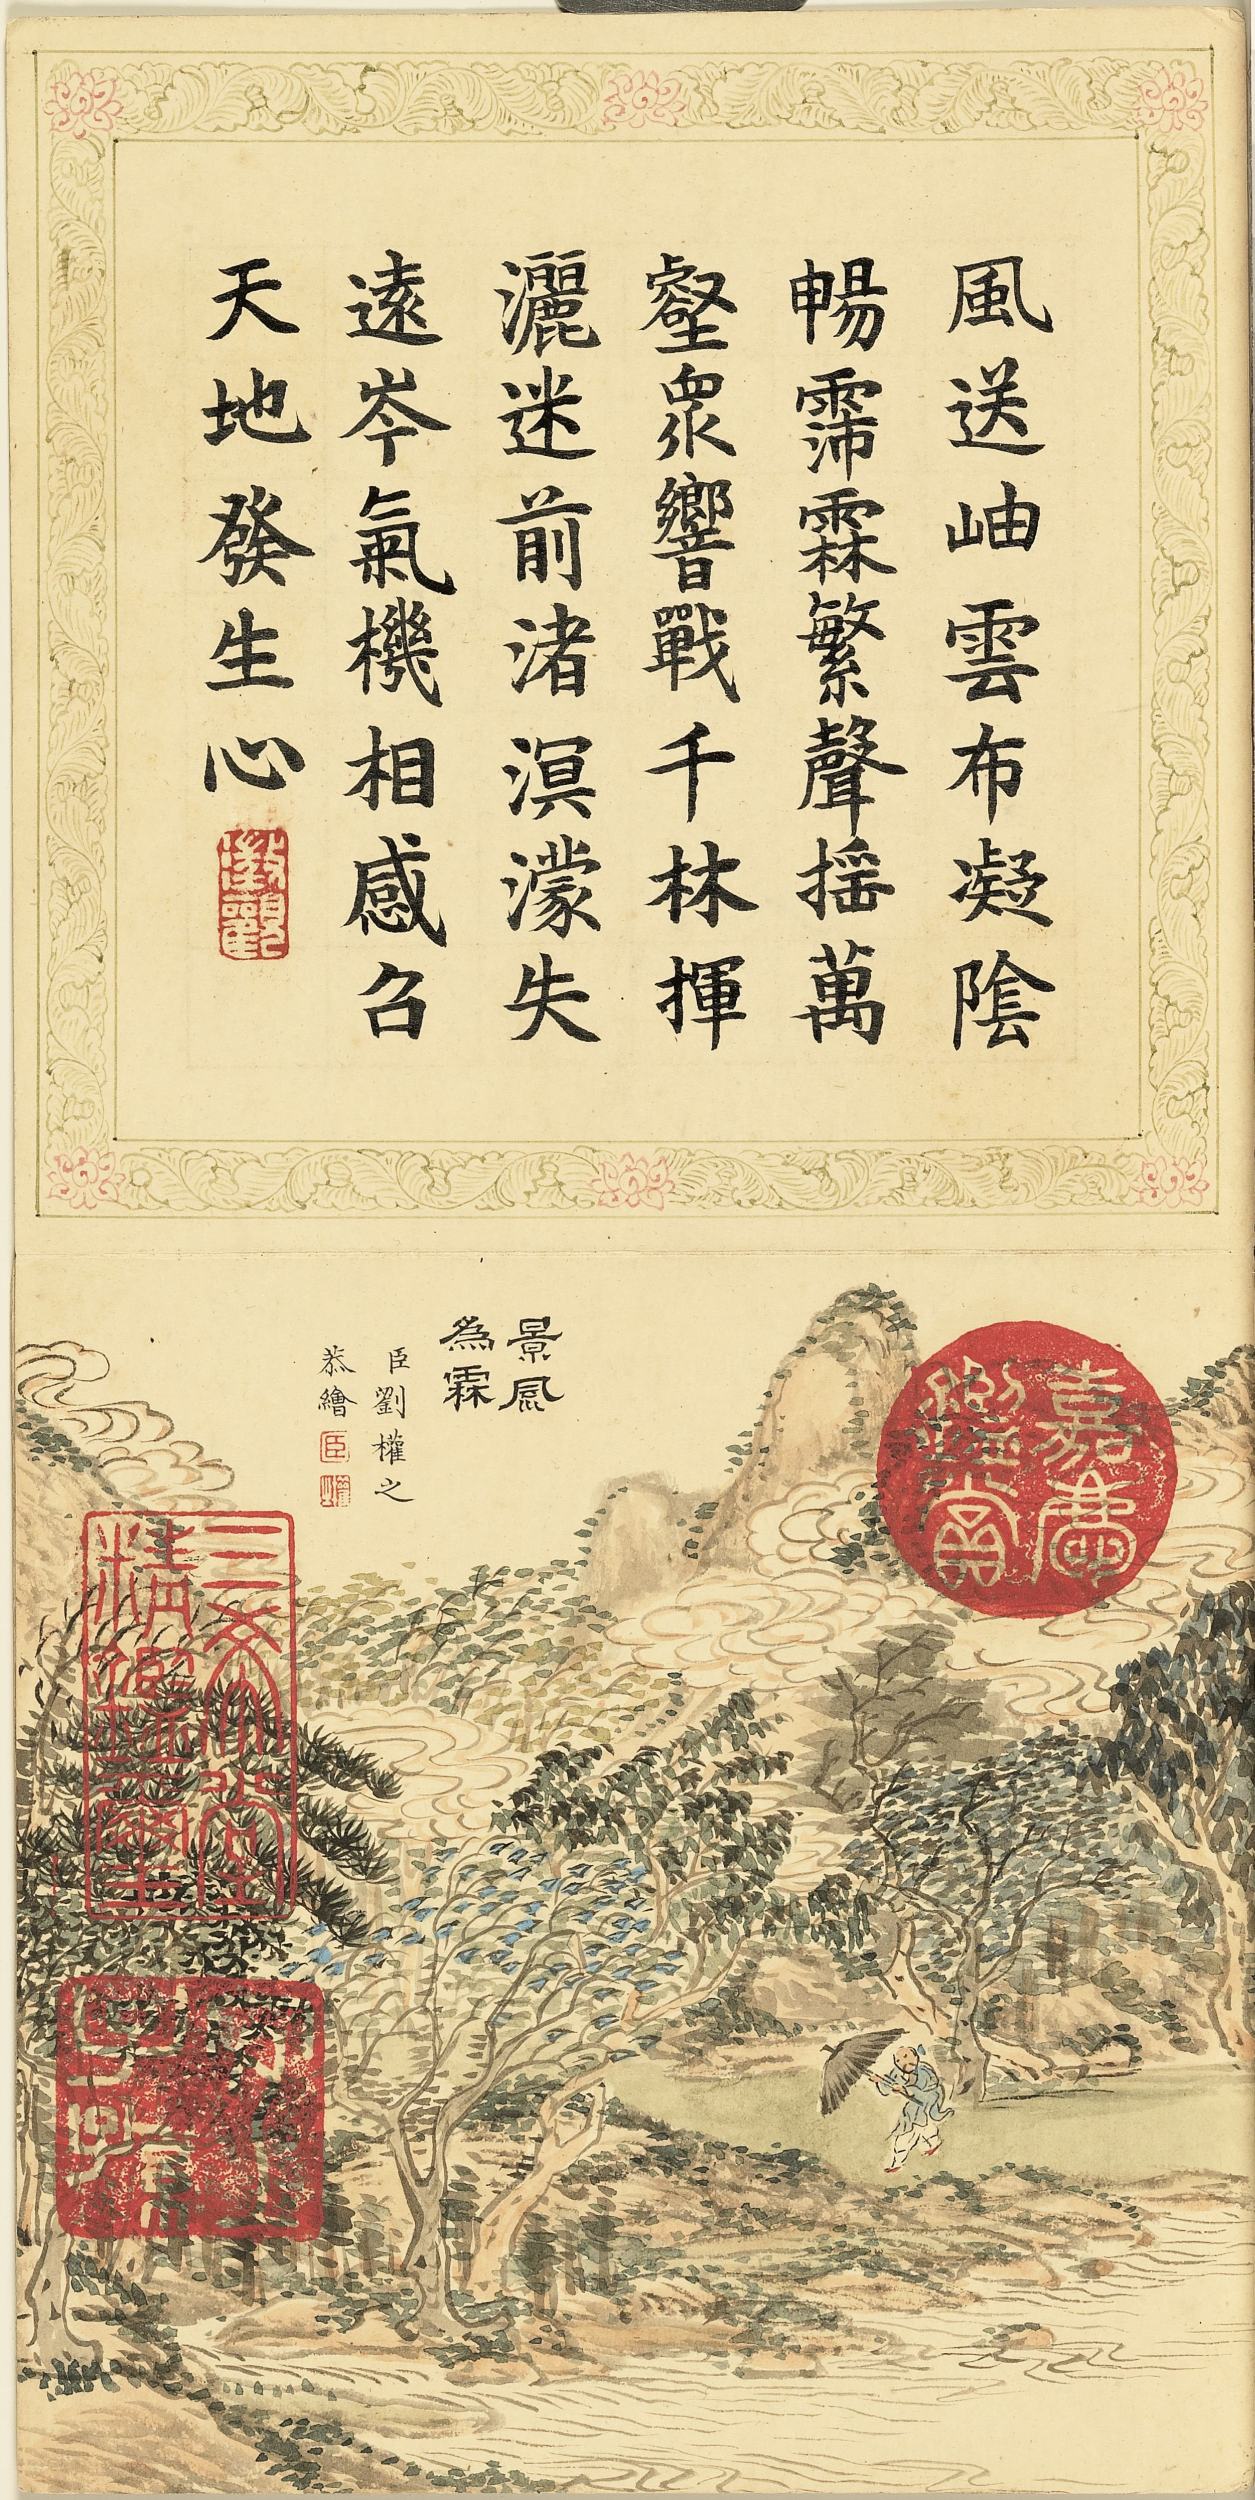 風送岫雲布凝陰
暢霈霖繁聲搖萬
壑衆響戰千林揮
灑迷前渚溟濛失
遠岑氣機相感召
天地發生心
景風
為霖
臣劉權之
恭繪
臣
權之
嘉慶
鑑賞
三希堂
精鑑璽
宜
子孫